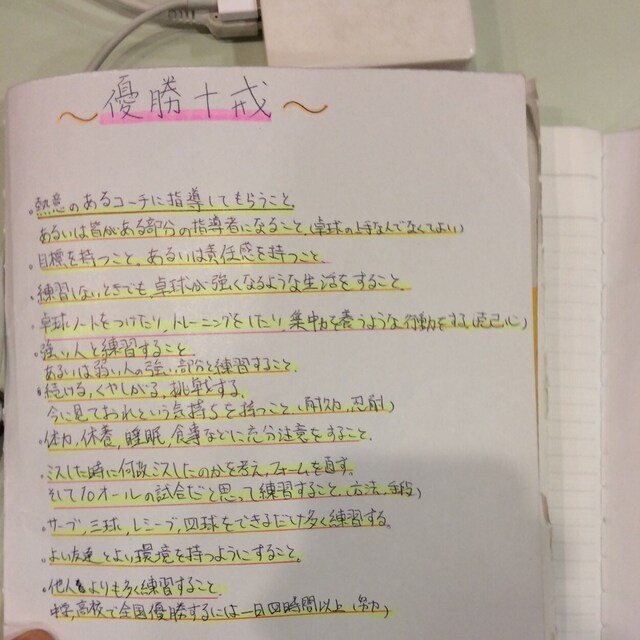 ～優勝十戒～
・熱意のあるコーチに指導してもらうこと。
あるいは自分がある部分の指導者になること。(卓球の上手なんでなくてよい)
・目標を持つこと、あるいは責任感を持つこと。
・練習しないときでも、卓球が強くなるような生活をすること。
・卓球ノートをつけたり、トレーニングをしたり、集中力を養うような行動をする。(克己心)
・強い人と練習すること。
あるいは弱い人の強い部分と練習すること。
・続ける、くやしがる、挑戦する。
今に見ておれという気持ちを持つこと。(耐久力、忍耐)
・体力、休養、睡眠、食事などに充分注意をすること。
・ミスした時に何故ミスしたのかを考え、フォームを直す。
そして10オールの試合だと思って練習すること。(方法、手段)
・サーブ、三球、レシーブ、四球をできるだけ多く練習する。
・よい友達とよい環境を持つようにすること。
・他人よりも多く練習すること。
中学、高校で全国優勝するには一日四時間以上(努力)